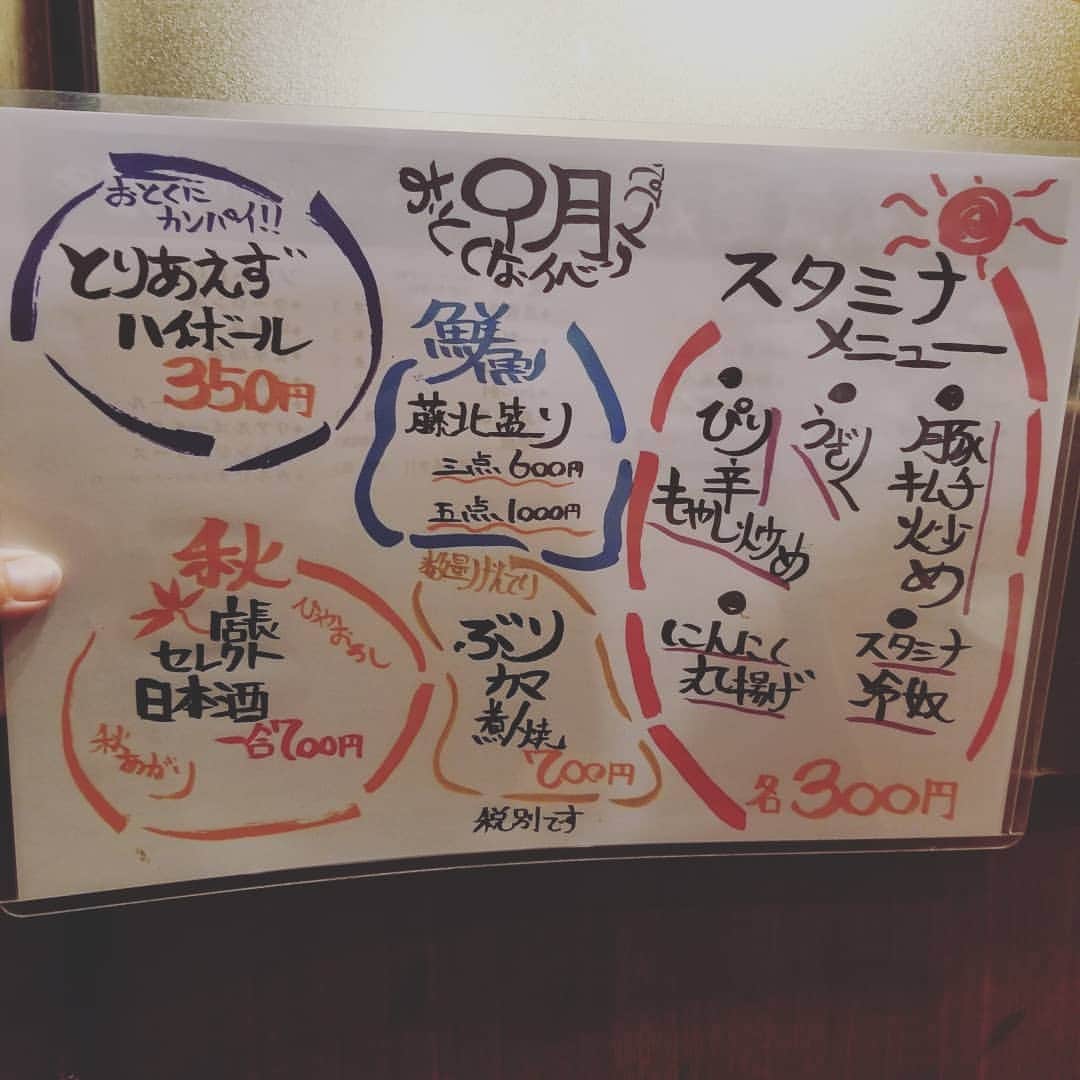 おとくに
カンパイ!!
とりあえず
ハイボール
350円
9月
鮮魚
藤北盛り
三点 600円
五点 1000円
スタミナ
メニュー
ぴり
辛
もやし炒め
うざく
豚
キムチ
炒
め
にんにく
丸揚げ
スタミナ
冷奴
各300円
秋
ひやおろし
店長
セレクト
日本酒
一合700円
秋
あがり
数量げんてい
ぶり
カマ
煮/焼
700円
税別です